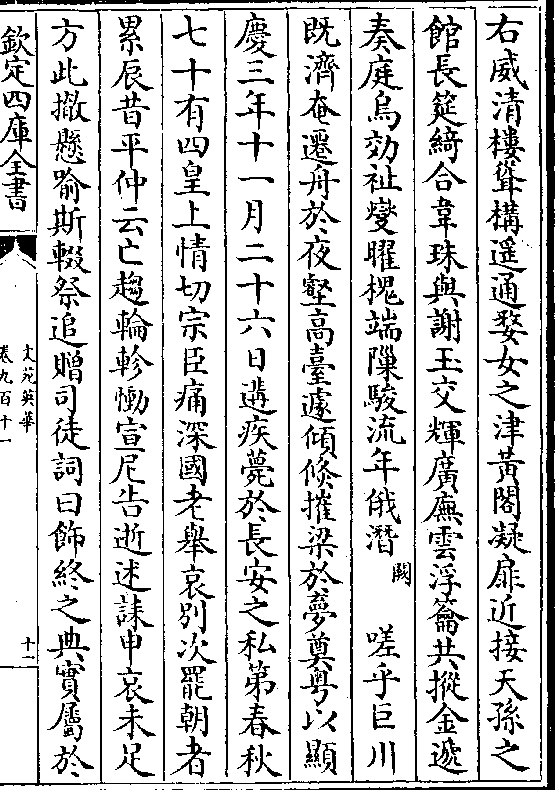 右威清樓聳構遥通婺女之津黄閣凝扉近接天孫之
館長筵綺合韋珠與謝玉交輝廣廡雲浮籥共摐金遞
奏庭烏効祉燮曜槐端隟駿流年俄潛闕嗟乎巨川
既濟奄遷舟於夜壑高臺遽傾倐摧梁於夢奠粤以顯
慶三年十一月二十六日遘疾薨於長安之私第春秋
七十有四皇上情切宗臣痛深國老舉哀别次罷朝者
累辰昔平仲云亡趨輪軫慟宣尼告逝述誄申哀未足
方此撤懸喻斯輟祭追贈司徒詞曰飾終之典實屬於
欽定四庫全書
文苑英華
卷九百十一
十一